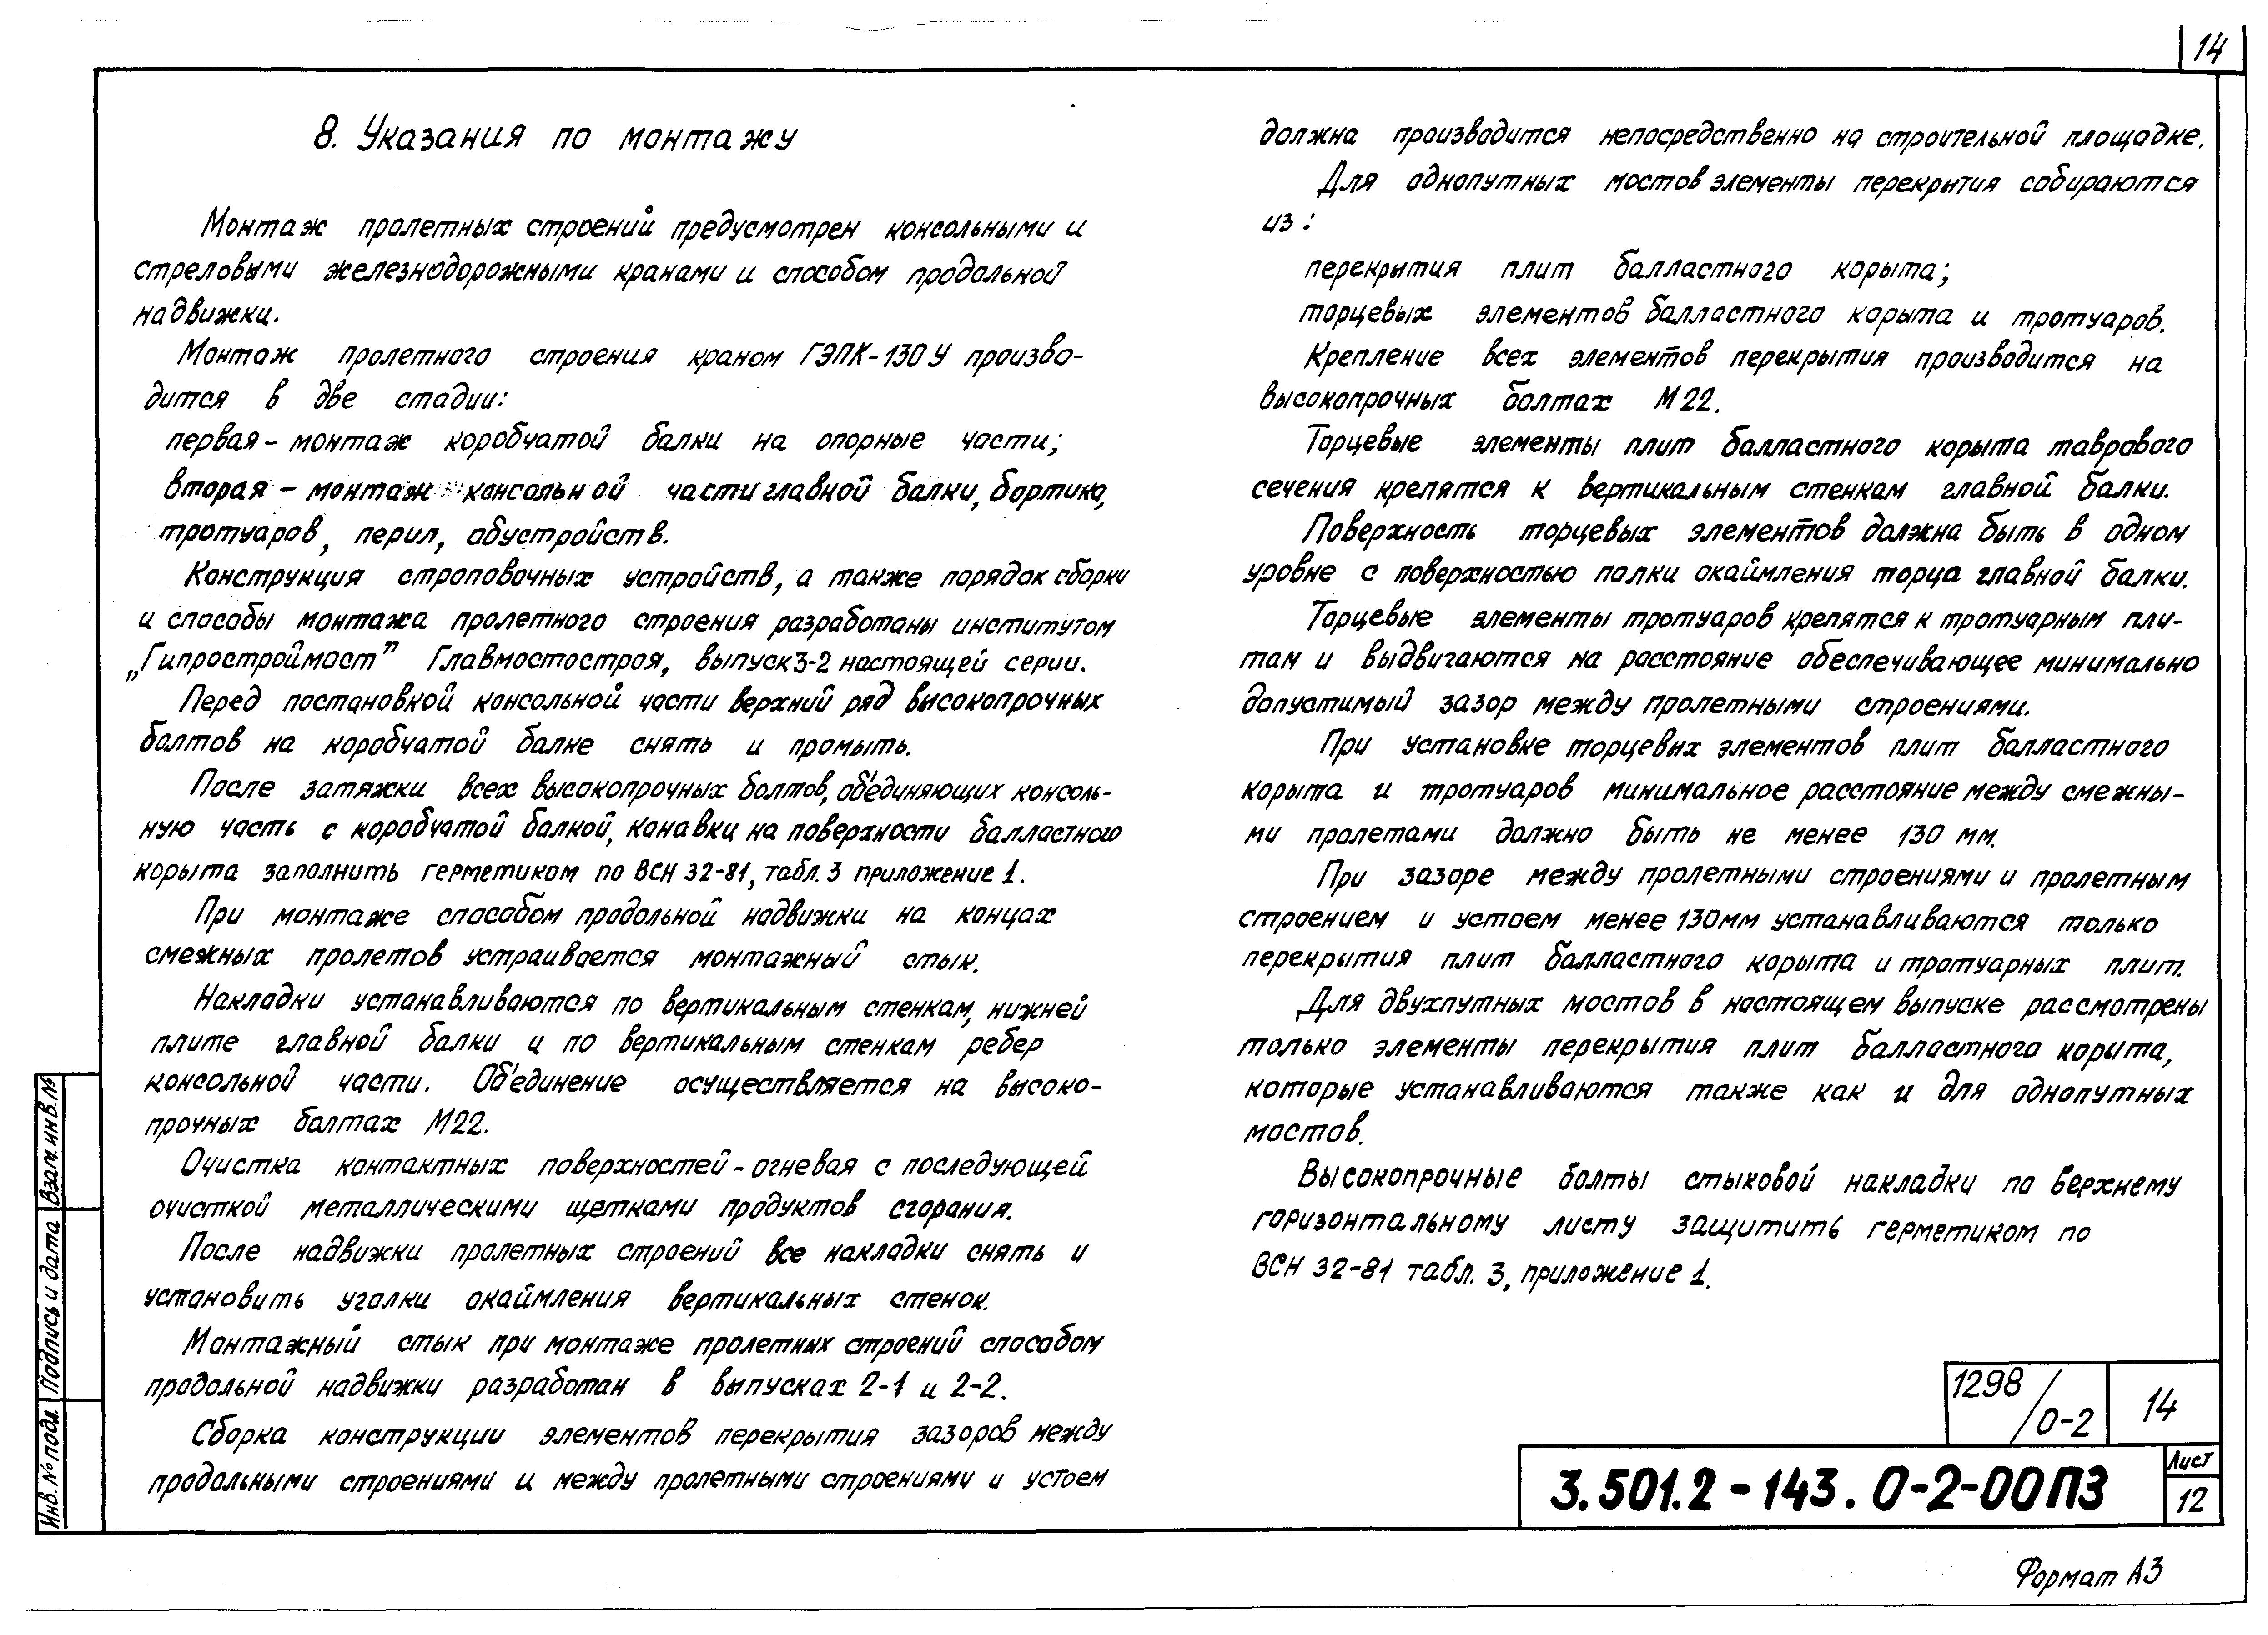 14
8. Указания по монтажу
Монтаж пролетных строений предусмотрен консольными и
стреловыми железнодорожными кранами и способом продольной
надвижки.
Монтаж пролетного строения краном ГЭПК-130У произво-
дится в две стадии:
первая - монтаж коробчатой балки на опорные части;
вторая - монтаж консольной части главной балки, бортика,
тротуаров, перил, обустройств.
Конструкция строповочных устройств, а также порядок сборки
и способы монтажа пролетного строения разработаны институтом
„Гипростроймост” Главмостостроя, выпуск 3-2 настоящей серии.
Перед постановкой консольной части верхний ряд высокопрочных
болтов на коробчатой балке снять и промыть.
После затяжки всех высокопрочных болтов, об'единяющих консоль-
ную часть с коробчатой балкой, канавки на поверхности балластного
корыта заполнить герметиком по ВСН 32-81, табл. 3 приложение 1.
При монтаже способом продольной надвижки на концах
смежных пролетов устраивается монтажный стык.
Накладки устанавливаются по вертикальным стенкам, нижней
плите главной балки и по вертикальным стенкам ребер
консольной части. Об'единение осуществляется на высоко-
прочных болтах М22.
Очистка контактных поверхностей - огневая с последующей
очисткой металлическими щетками продуктов сгорания.
После надвижки пролетных строений все накладки снять и
установить уголки окаймления вертикальных стенок.
Монтажный стык при монтаже пролетных строений способом
продольной надвижки разработан в выпусках 2-1 и 2-2.
Сборка конструкции элементов перекрытия зазоров между
продольными строениями и между пролетными строениями и устоем
должна производится непосредственно на строительной площадке.
Для однопутных мостов элементы перекрытия собираются
из:
перекрытия плит балластного корыта;
торцевых элементов балластного корыта и тротуаров.
Крепление всех элементов перекрытия производится на
высокопрочных болтах М22.
Торцевые элементы плит балластного корыта таврового
сечения крепятся к вертикальным стенкам главной балки.
Поверхность торцевых элементов должна быть в одном
уровне с поверхностью полки окаймления торца главной балки.
Торцевые элементы тротуаров крепятся к тротуарным пли-
там и выдвигаются на расстояние обеспечивающее минимально
допустимый зазор между пролетными строениями.
При установке торцевых элементов плит балластного
корыта и тротуаров минимальное расстояние между смежны-
ми пролетами должно быть не менее 130 мм.
При зазоре между пролетными строениями и пролетным
строением и устоем менее 130мм устанавливаются только
перекрытия плит балластного корыта и тротуарных плит.
Для двухпутных мостов в настоящем выпуске рассмотрены
только элементы перекрытия плит балластного корыта,
которые устанавливаются также как и для однопутных
мостов.
Высокопрочные болты стыковой накладки по верхнему
горизонтальному листу защитить герметиком по
ВСН 32-81 табл. 3, приложение 1.
Взам. инв. №
Подпись и дата
Инв. № подл.
1298/0-2
14
3.501.2-143.0-2-00ПЗ
Лист
12
Формат А3